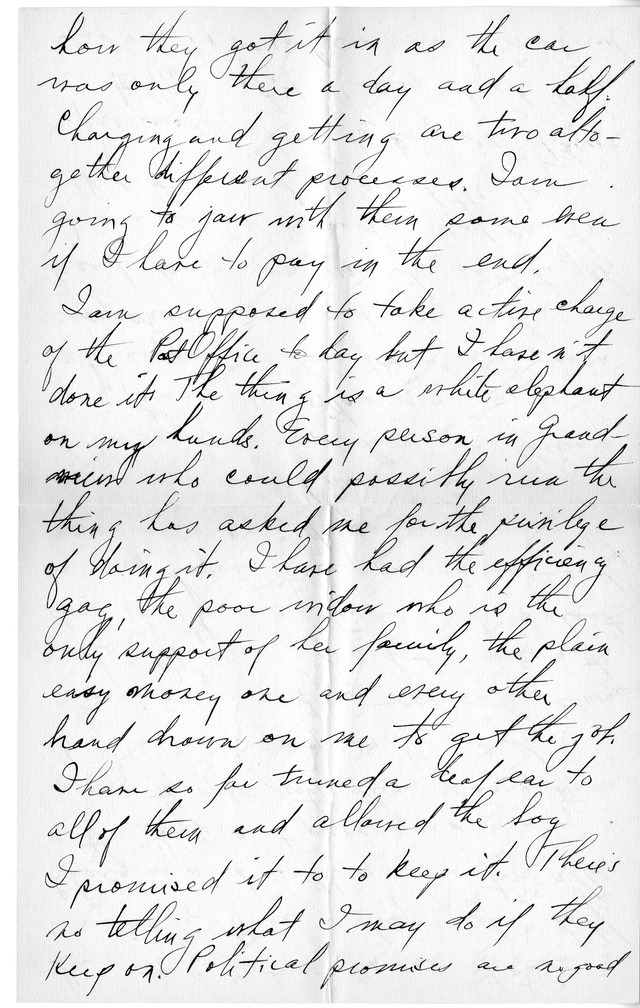 how they got it in as the car
was only there a day and a half.
Charging and getting are two alto-
gether different processes. I am
going to jaw with them some even
if I have to pay in the end.
I am supposed to take active charge
of the Post Office to day but I haven't
done it. The thing is a white elephant
on my hands. Every person in Grand-
view who could possibly run the
thing has asked me for the privilege
of doing it. I have had the efficiency
gag, the poor widow who is the
only support of her family, the plain
easy money one and every other
hand drawn on me to get the job.
I have so far turned a deaf ear to
all of them and allowed the boy
I promised it to to keep it. There's
no telling what I may do if they
keep on. Political promises are no good